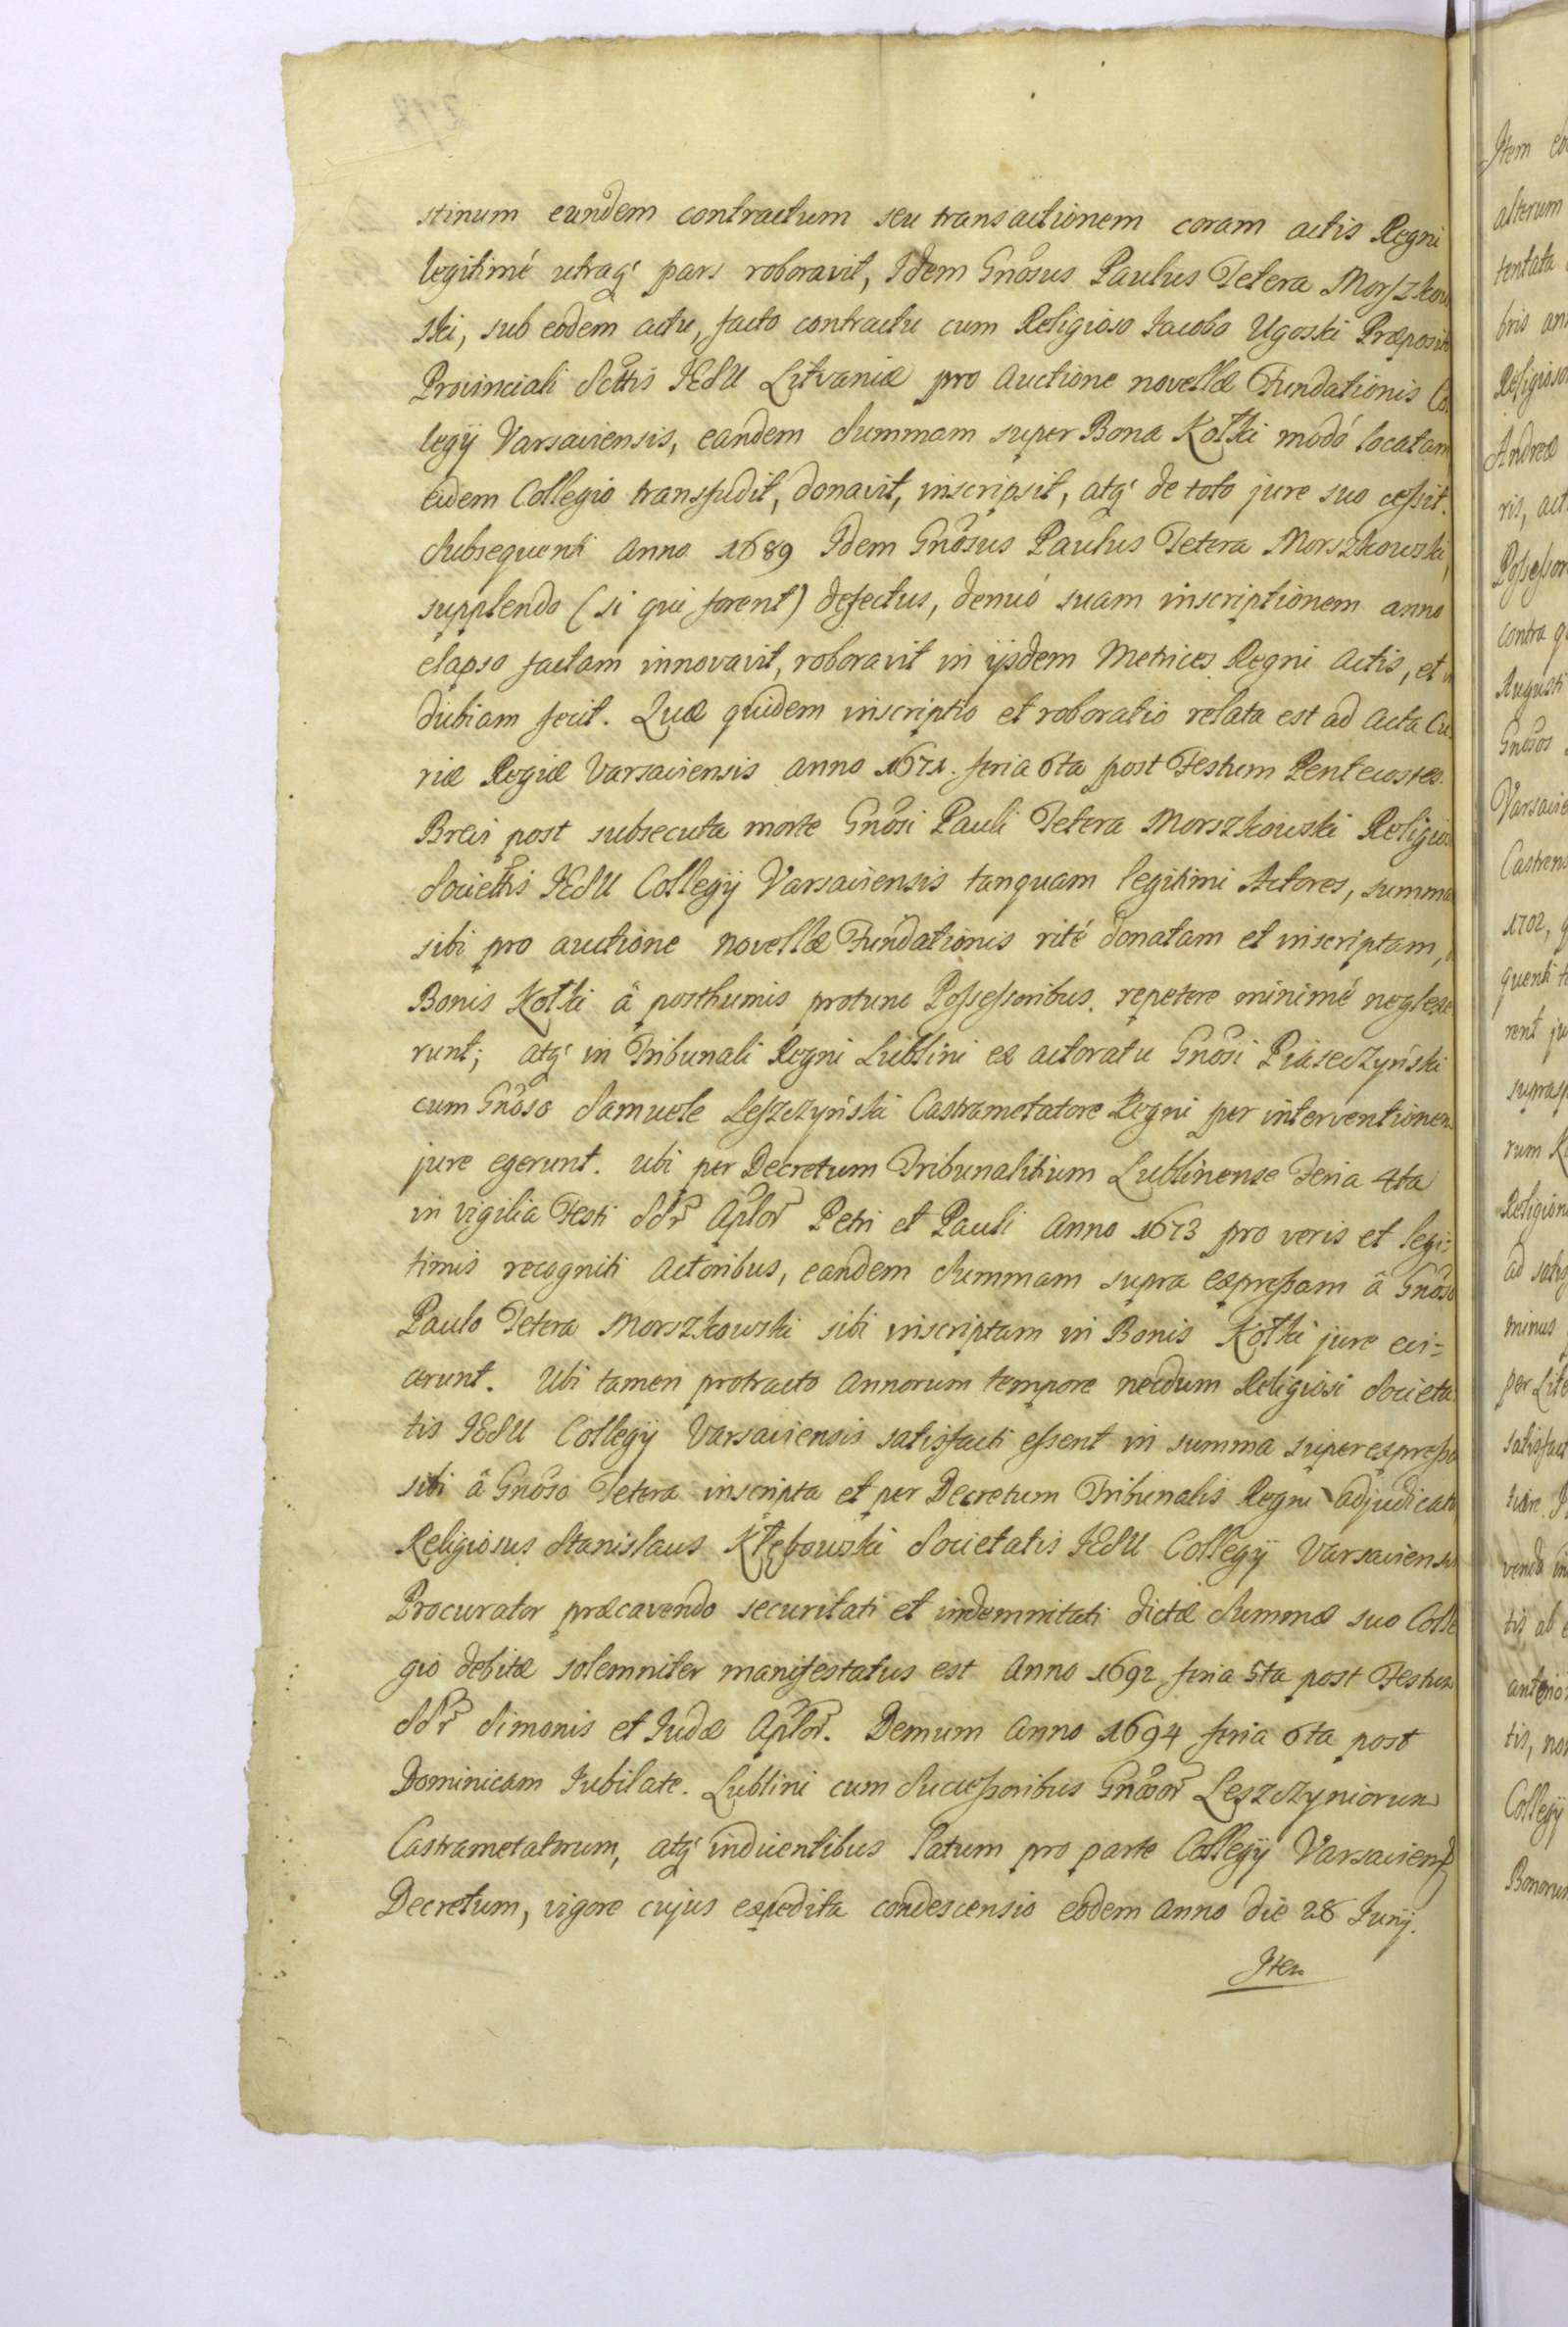 stinum eundem contractum seu transactionem coram actis Regni
legitimé utraq' pars roboravit, Idem Gnosus Paulus Tetera Morszkow
ski, sub eodem actu, facto contractu cum Religioso Iacobo Ugoski Præposito
Provinciali Socttis IESU Litvaniæ pro auctione novellæ Fundationis Co
legij Varsaviensis, eandem Summam super Bona Kotki modó locatam
eidem Collegio transfudit, donavit, inscripsit, atq' de toto jure suo cessit.
Subsequenti anno 1689 Idem Gnosus Paulus Tetera Morszkowski,
supplendo (si qui forent) defectus, denuó suam inscriptionem anno
elapso factam innovavit, roboravit in ijsdem Metrices Regni Actis, et in
dubiam fecit. Quæ quidem inscriptio et roboratio relata est ad Acta Cu
riæ Regiæ Varsaviensis anno 1671. feria 6ta post Festum Pentecostes.
Brevi post subsecuta morte Gnosi Pauli Tetera Morszkowski Religios
Societtis IESU Collegij Varsaviensis tanquam legitimi Actores, summa
sibi pro auctione novellæ Fundationis rité donatam et inscriptam,
Bonis Kotki â posthumis protunc Possessoribus repetere minimé neglexe
runt; atq' in Tribunali Regni Lublini ex actoratu Gnosi Piaseczyński
cum Gnoso Samuele Leszczyński Castrametatore Regni per interventionem
jure egerunt. Ubi per Decretum Tribunalitium Lublinense Feria 4ta
in vigilia Festi SSr Aplor Petri et Pauli Anno 1673 pro veris et legi=
timis recogniti Actoribus, eandem Summam supra expressam â Gnoso
Paulo Tetera Morszkowski sibi inscriptam in Bonis Kotki jure evi=
cerunt. Ubi tamen protracto Annorum tempore necdum Religiosi Societa
tis IESU Collegij Varsaviensis satisfacti essent in summa superexpressa
sibi â Gnoso Tetera inscripta et per Decretum Tribunalis Regni adjudicata
Religiosus Stanislaus Kłębowski Societatis IESU Collegij Varsaviensis
Procurator præcavendo securitati et indemnitati dictæ Summæ suo Colle
gio debitæ solemniter manifestatus est Anno 1692 feria 5ta post Festum
SSr Simonis et Iudæ Aplor. Demum Anno 1694 feria 6ta post
Dominicam Iubilate. Lublini cum Successoribus Gnosor Leszczyniorum
Castrametatorum, atq' inducentibus latum pro parte Collegij Varsaviens
Decretum, vigore cujus expedita condescensio eodem anno die 28 Iunij.
Item
Item
alterum
tentata
bris
Religioso
Andreæ
ris, act
Possessor
contra
Augusti
Gnosos
Varsavie
Castrens
1702,
quenti
rent ju
supras
rum K
Religios
ad satis
minus
per Lite
satisfact
tis, ab
anterior
tis, non
Collegij
Bonorum